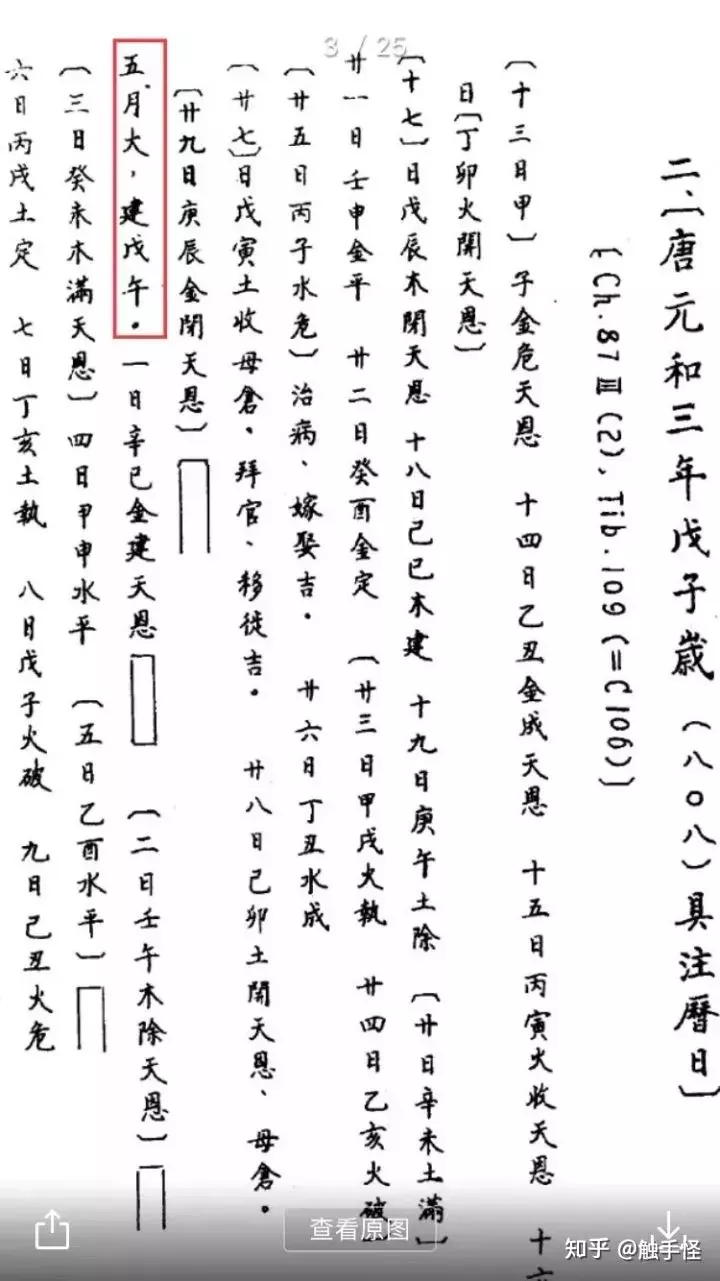 3 / 25
二、〔唐元和三年戊子歲(八〇八)具注曆日〕
〔Ch.87Ⅲ(2).Tib.109(=C106)〕
〔十三日甲〕子金危天恩 十四日乙丑金成天恩 十五日丙寅火收天恩 十六
日〔丁卯火開天恩〕
〔十七〕日戊辰木閉天恩 十八日己巳木建 十九日庚午土除 〔廿日辛未土滿〕
廿一日壬申金平 廿二日癸酉金定 〔廿三日甲戌火執 廿四日乙亥火破
〔廿五日丙子水危〕治病、嫁娶吉。 廿六日丁丑水成
〔廿七〕日戊寅土收母倉。拜官、移徙吉。 廿八日己卯土開天恩、母倉。
〔廿九日庚辰金閉天恩〕
五月大,建戊午。一日辛巳金建天恩 〔二日壬午木除天恩〕
〔三日癸未木滿天恩〕四日甲申水平 〔五日乙酉水平〕
六日丙戌土定 七日丁亥土執 八日戊子火破 九日己丑火危
查看原图
知乎 @触手怪